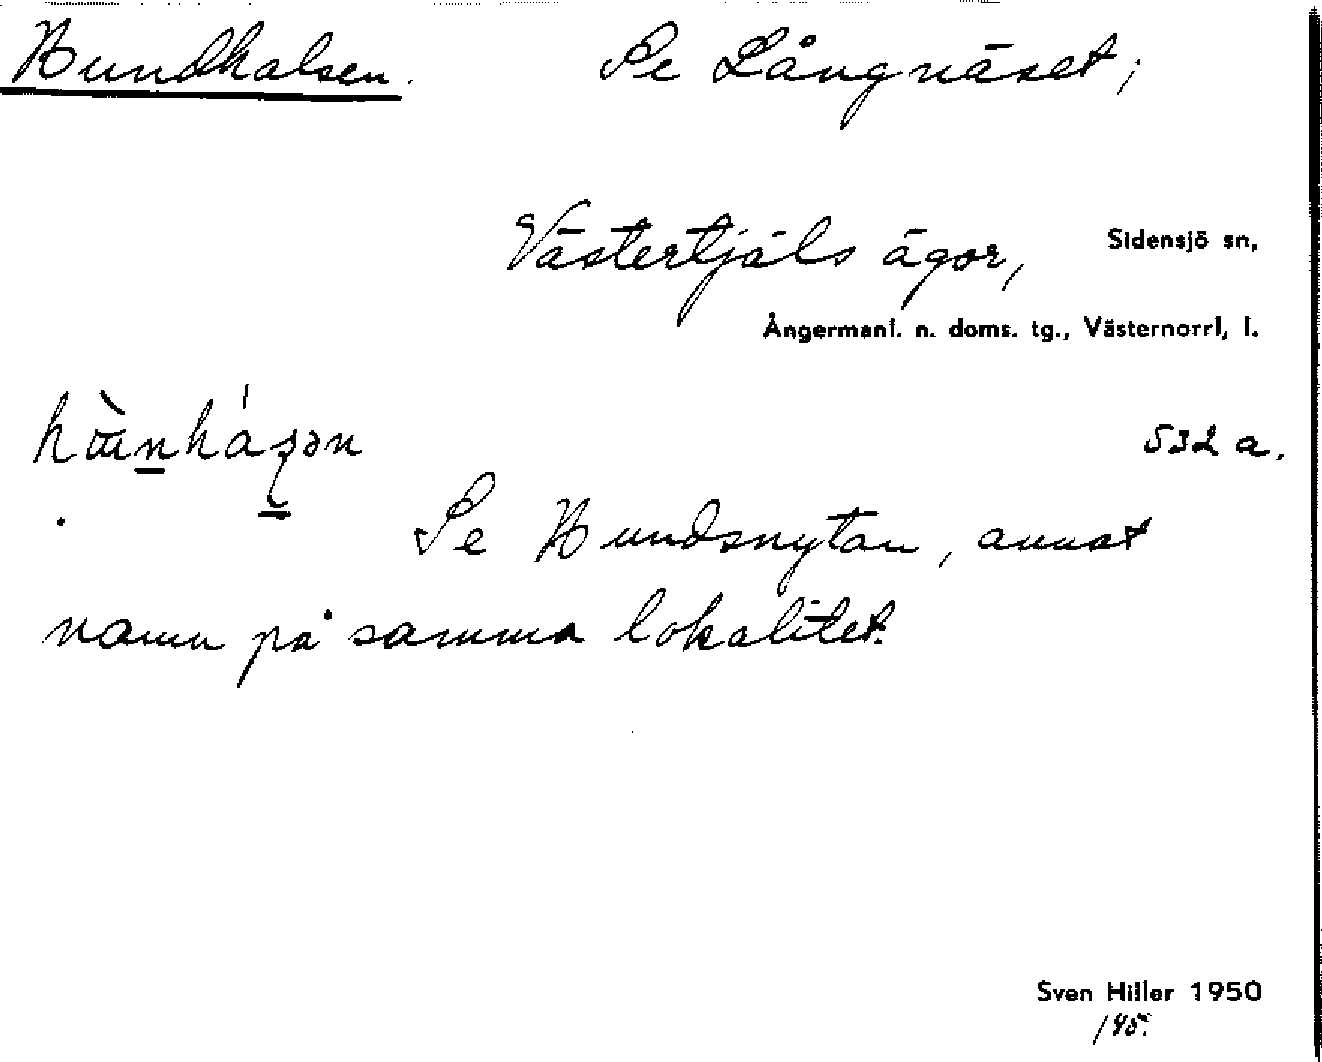 Hundhalsen. Se Långnäset;
Västertjäls ägor, Sidensjö sn,
Ångermanl. n. doms. tg., Västernorrl, l.
532 a.
Se Hundsnytan, annat
namn på samma lokalitet.
Sven Hiller 1950